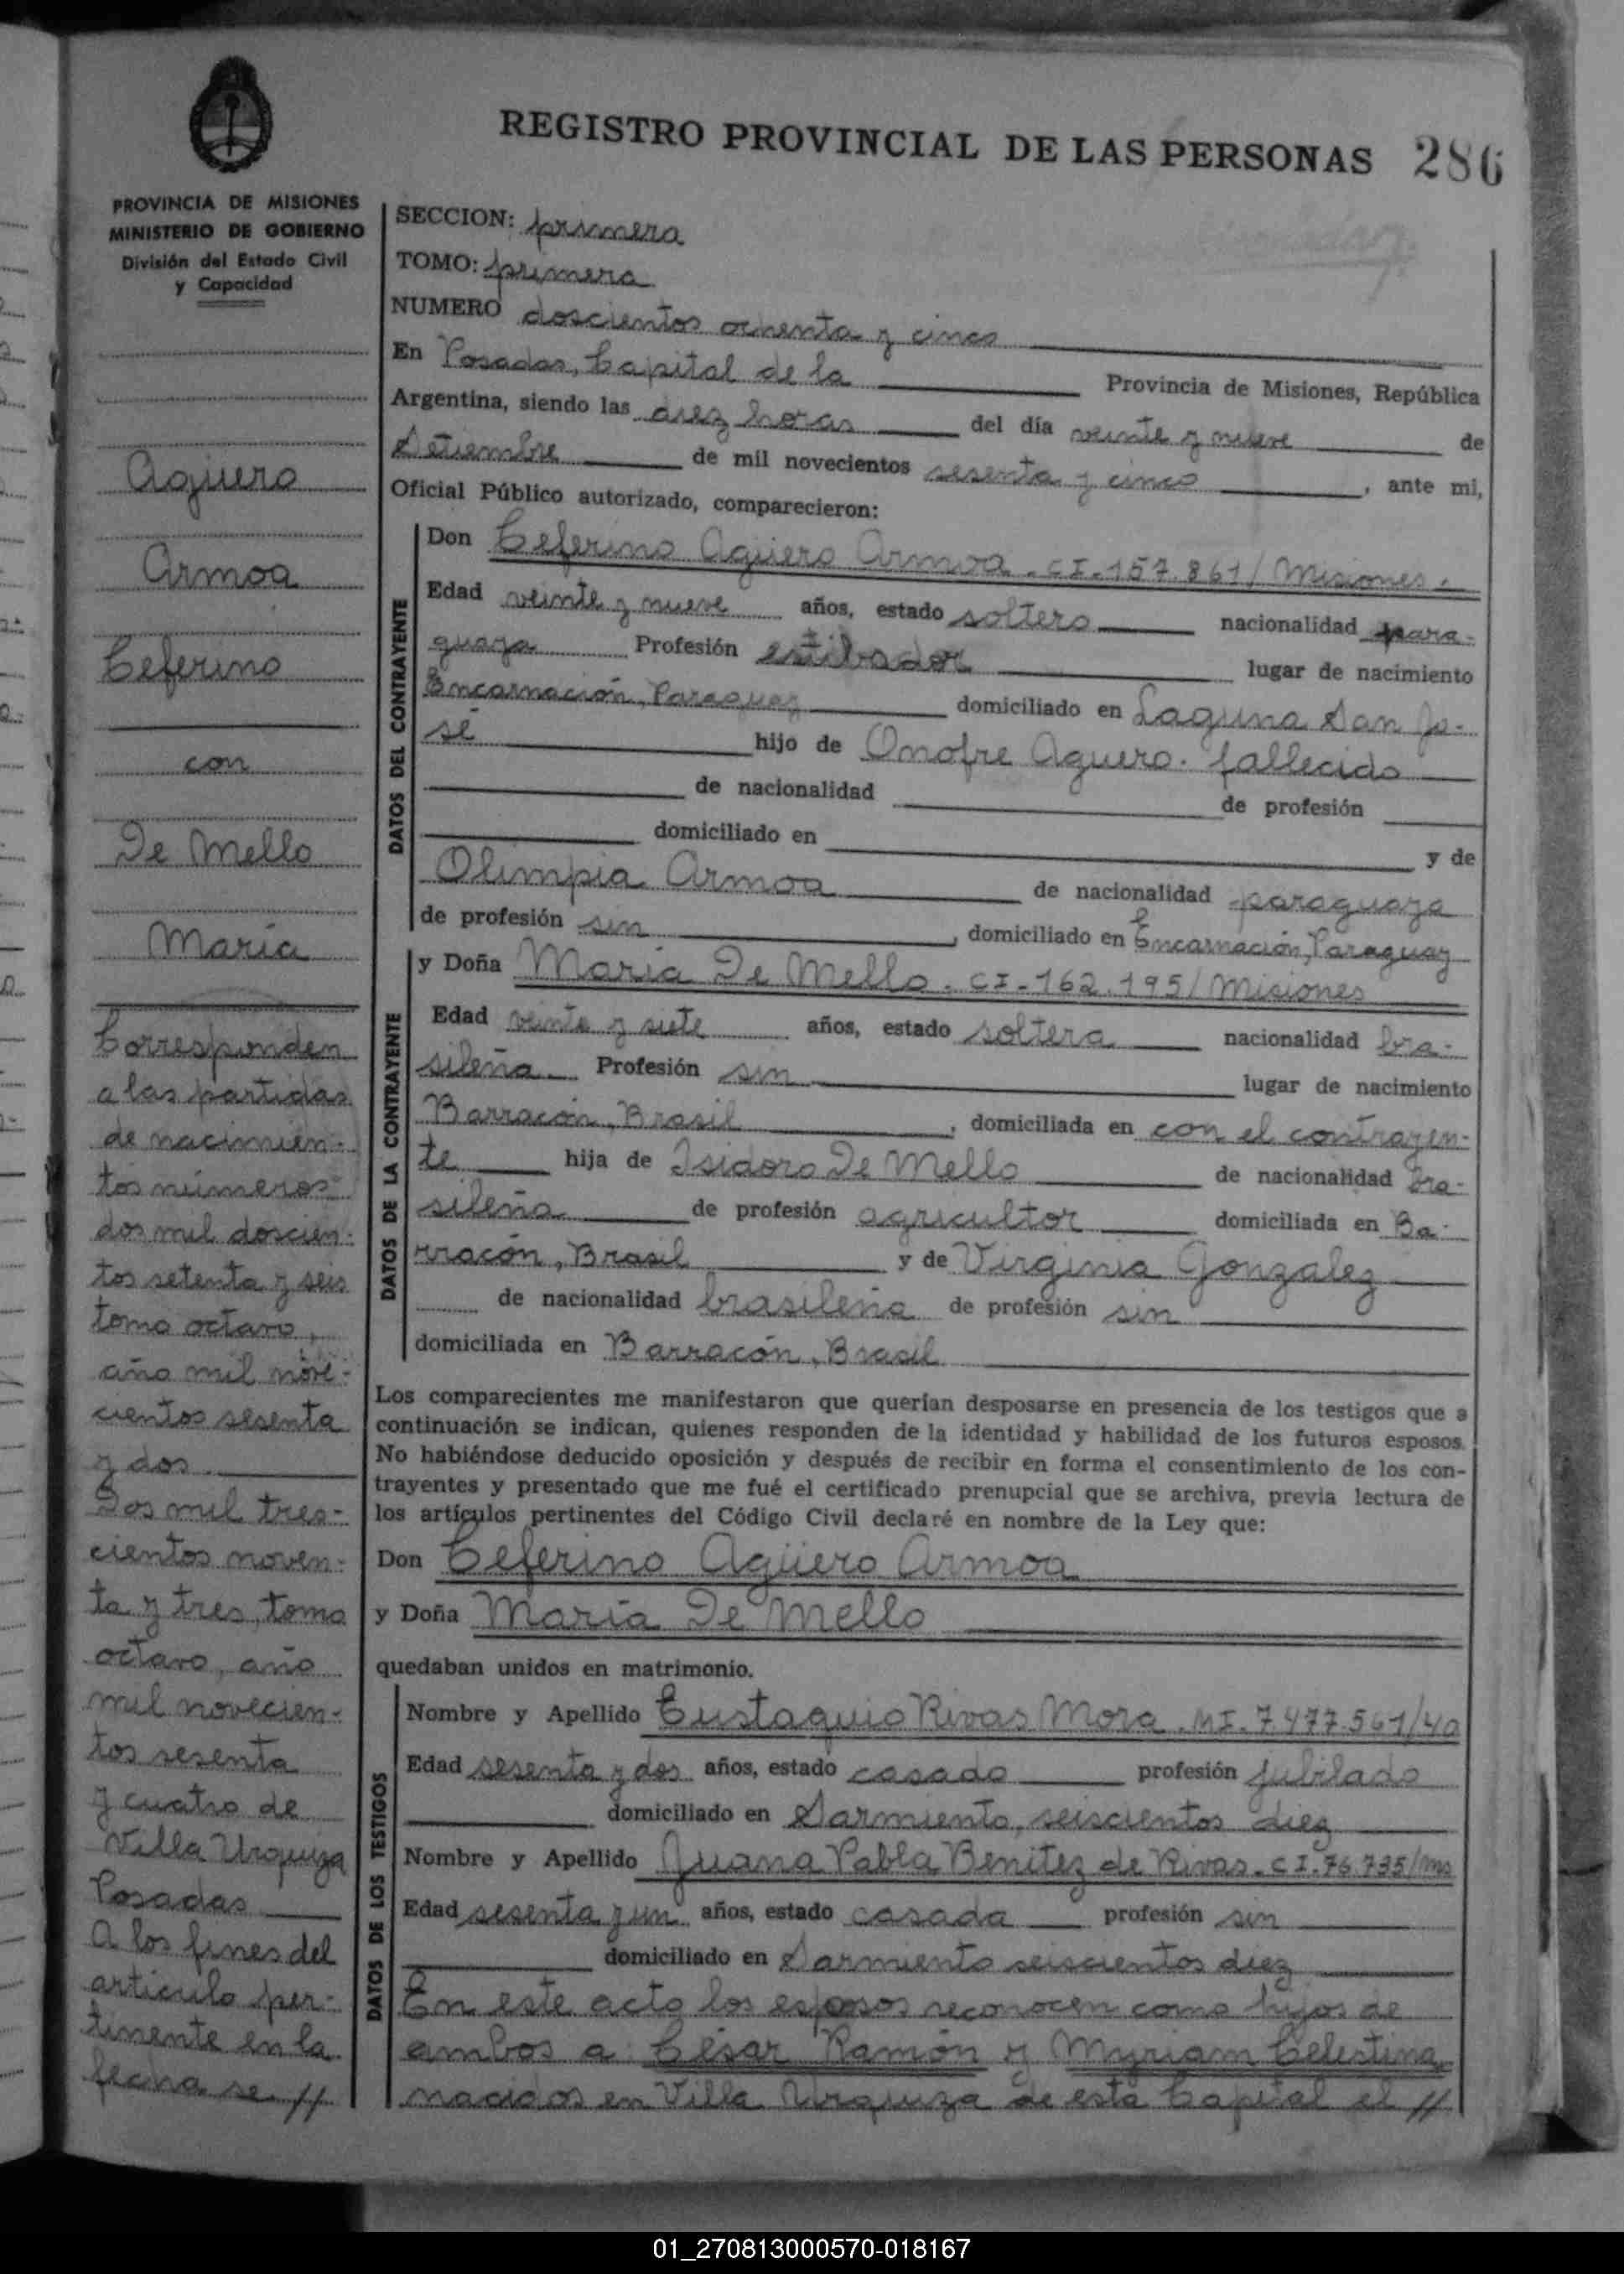 REGISTRO PROVINCIAL DE LAS PERSONAS 286
PROVINCIA DE MISIONES
MINISTERIO DE GOBIERNO
División del Estado Civil
y Capacidad
Agüero
Armoa
Ceferino
con
De Mello
María
Corresponden
a las partidas
de nacimien-
tos números
dos mil doscien-
tos setenta y seis
tomo octavo,
año mil nove-
cientos sesenta
y dos.
Dos mil tres-
cientos noven-
ta y tres, tomo
octavo, año
mil novecien-
tos sesenta
y cuatro de
Villa Urquiza
Posadas
A los fines del
artículo per-
tinente en la
fecha se //
SECCION: primera
TOMO: primera
NUMERO doscientos ochenta y cinco
En Posadas, Capital de la Provincia de Misiones, República
Argentina, siendo las diez horas del día veinte y nueve de
Setiembre de mil novecientos sesenta y cinco, ante mi,
Oficial Público autorizado, comparecieron:
DATOS DEL CONTRAYENTE
Don Ceferino Agüero Armoa. CI-157.861/Misiones.
Edad veinte y nueve años, estado soltero nacionalidad para-
guaya Profesión estibador lugar de nacimiento
Encarnación, Paraguay domiciliado en Laguna San Jo-
sé hijo de Onofre Aguero. fallecido
de nacionalidad de profesión
domiciliado en y de
Olimpia Armoa de nacionalidad paraguaya
de profesión sin, domiciliado en Encarnación, Paraguay
DATOS DE LA CONTRAYENTE
y Doña María De Mello. CI-162.195/Misiones
Edad veinte y siete años, estado soltera nacionalidad bra-
sileña Profesión sin lugar de nacimiento
Barracón, Brasil, domiciliada en con el contrayen-
te hija de Isidoro De Mello de nacionalidad bra-
sileña de profesión agricultor domiciliada en Ba-
rracón, Brasil y de Virginia Gonzalez
de nacionalidad brasileña de profesión sin
domiciliada en Barracón, Brasil
Los comparecientes me manifestaron que querían desposarse en presencia de los testigos que a
continuación se indican, quienes responden de la identidad y habilidad de los futuros esposos.
No habiéndose deducido oposición y después de recibir en forma el consentimiento de los con-
trayentes y presentado que me fué el certificado prenupcial que se archiva, previa lectura de
los artículos pertinentes del Código Civil declaré en nombre de la Ley que:
Don Ceferino Agüero Armoa
y Doña María De Mello
quedaban unidos en matrimonio.
DATOS DE LOS TESTIGOS
Nombre y Apellido Eustaquio Rivas Mora. MI. 7477.561/40
Edad sesenta y dos años, estado casado profesión jubilado
domiciliado en Sarmiento, seiscientos diez
Nombre y Apellido Juana Pabla Benitez de Rivas. CI. 76.735/ms
Edad sesenta y un años, estado casada profesión sin
domiciliado en Sarmiento seiscientos diez
En este acto los esposos reconocen como hijos de
ambos a: César Ramón y Myriam Celestina
nacidos en Villa Urquiza de esta Capital el //
01_270813000570-018167